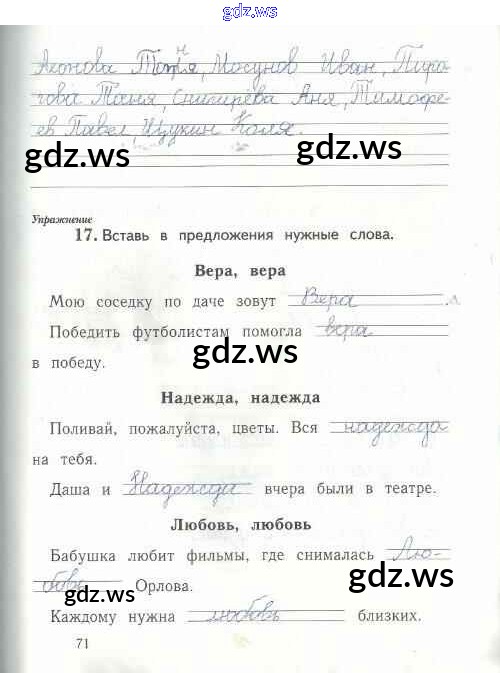 gdz.ws
Аконова Таня, Мосунов Иван, Пиро-
гова Таня, Снигирёва Аня, Тимофе-
ев Павел, Щукин Коля.
gdz.ws
gdz.ws
Упражнение
17. Вставь в предложения нужные слова.
Вера, вера
Мою соседку по даче зовут Вера.
Победить футболистам помогла вера
в победу.
gdz.ws
Надежда, надежда
Поливай, пожалуйста, цветы. Вся надежда
на тебя.
Даша и Надежда вчера были в театре.
gdz.ws
Любовь, любовь
Бабушка любит фильмы, где снималась Лю-
бовь Орлова.
gdz.ws
gdz.ws
Каждому нужна любовь близких.
71
gdz.ws